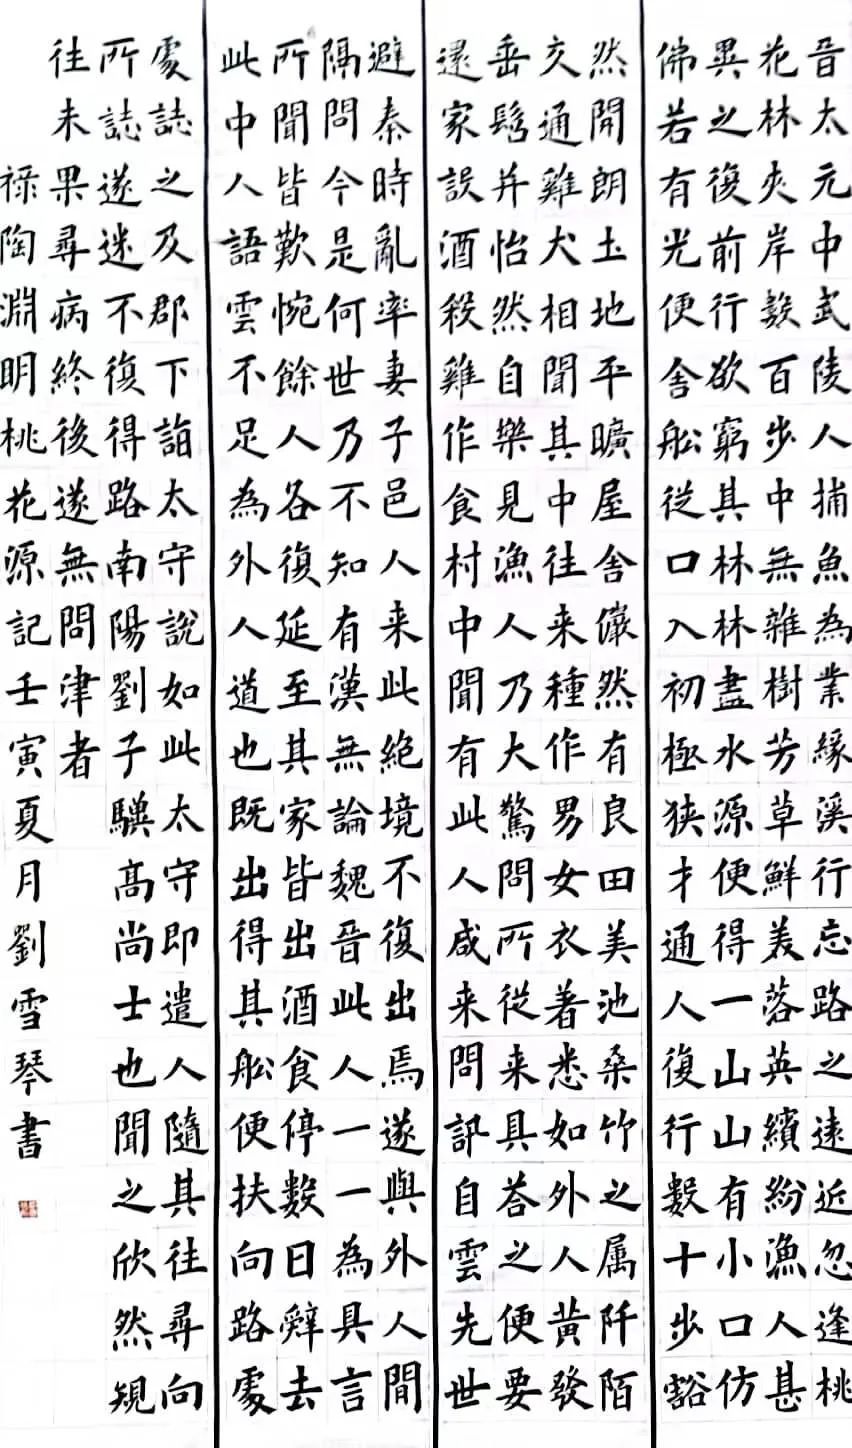 晉太元中武陵人捕魚為業緣溪行忘路之遠近忽逢桃
花林夾岸數百步中無雜樹芳草鮮美落英繽紛漁人甚
異之復前行欲窮其林林盡水源便得一山山有小口仿
佛若有光便舍船從口入初極狹才通人復行數十步豁
然開朗土地平曠屋舍儼然有良田美池桑竹之属阡陌
交通雞犬相聞其中往来種作男女衣著悉如外人黃發
垂髫并怡然自樂見漁人乃大驚問所從来具荅之便要
還家設酒殺雞作食村中聞有此人咸来問訊自雲先世
避秦時亂率妻子邑人来此絕境不復出焉遂與外人間
隔問今是何世乃不知有漢無論魏晉此人一一為具言
所聞皆歎惋餘人各復延至其家皆出酒食停數日辭去
此中人語雲不足為外人道也既出得其船便扶向路處
處誌之及郡下詣太守說如此太守即遣人隨其往尋向
所誌遂迷不復得路南陽劉子驥高尚士也聞之欣然規
往未果尋病終後遂無問津者
祿陶淵明桃花源記壬寅夏月劉雪琴書